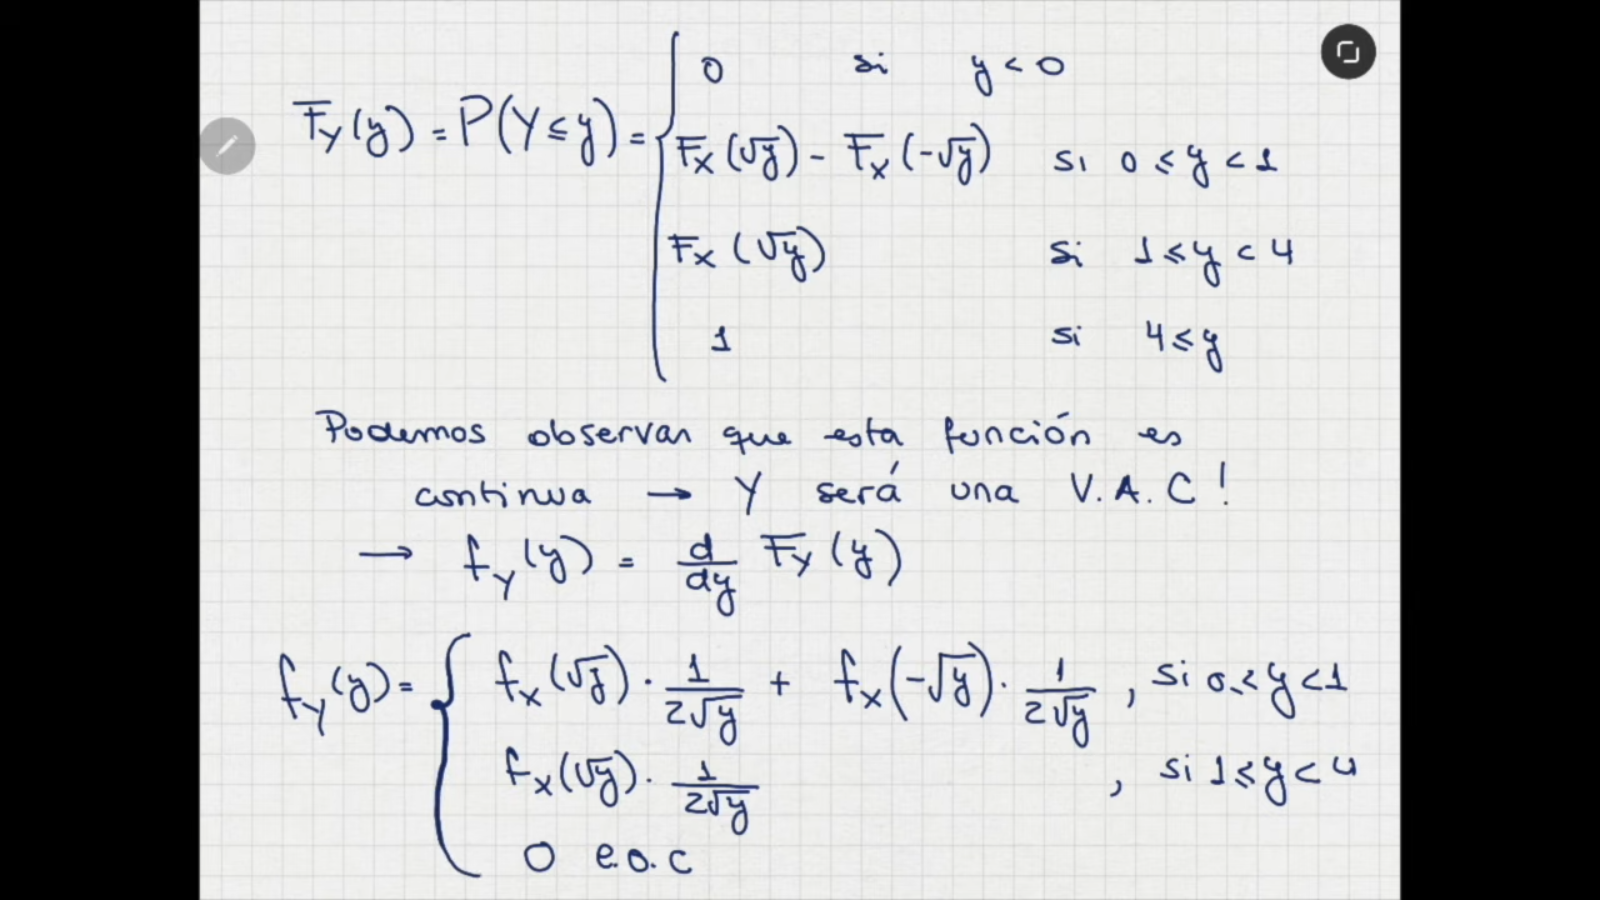 F_Y(y) = P(Y ≤ y) = { 0 si y < 0
F_X(√y) - F_X(-√y) si 0 ≤ y < 1
F_X(√y) si 1 ≤ y < 4
1 si 4 ≤ y
Podemos observar que esta función es
continua → Y será una V.A.C!
→ f_Y(y) = d/dy F_Y(y)
f_Y(y) = { f_X(√y) · 1/(2√y) + f_X(-√y) · 1/(2√y) , si 0 ≤ y < 1
f_X(√y) · 1/(2√y) , si 1 ≤ y < 4
0 e.o.c